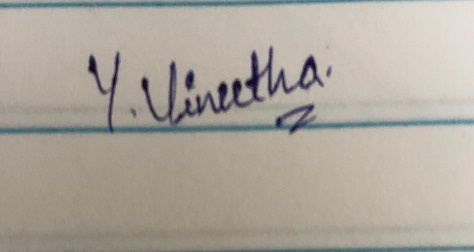 Y. Vineetha.